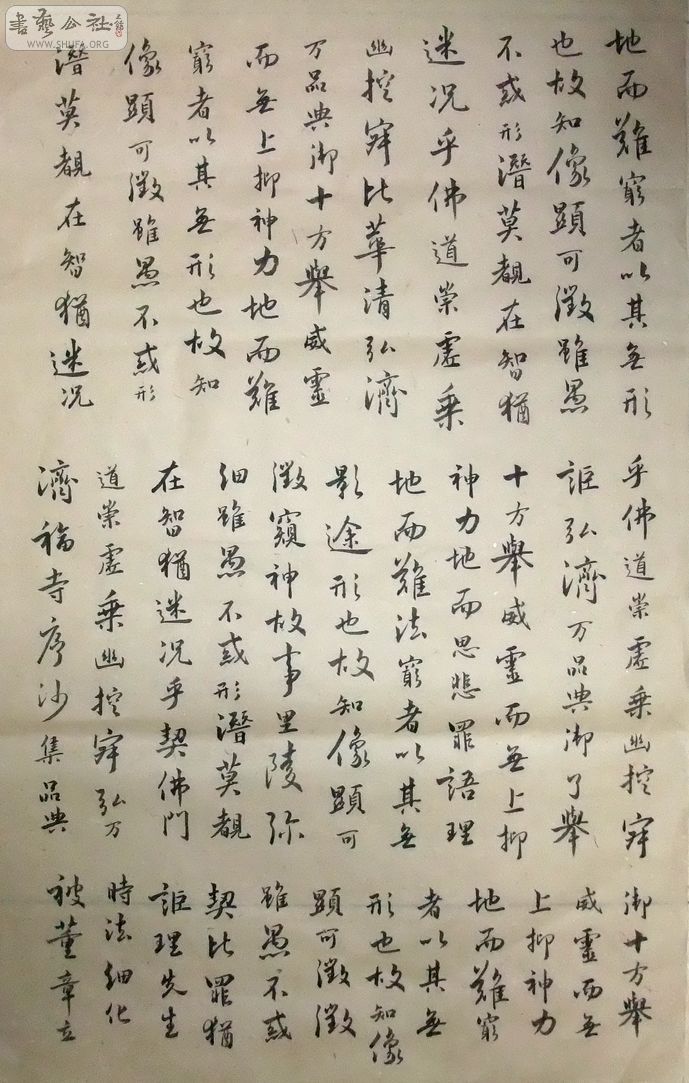 書藝公社
WWW.SHUFA.ORG
地而難窮者以其無形
也故知像顯可徵雖愚
不或形潛莫覩在智猶
迷況乎佛道崇虛乘
幽控寂比華清弘濟
万品典御十方舉威靈
而無上抑神力地而難
窮者以其無形也故知
像顯可徵雖愚不或形
潛莫覩在智猶迷況
乎佛道崇虛乘幽控寂
詎弘濟万品典御了舉
十方舉威靈而無上抑
神力地而思悲罪語理
地而難法窮者以其無
影途形也故知像顯可
徵窺神故事里陵弥
細雖愚不或形潛莫覩
在智猶迷況乎契佛門
道崇虛乘幽控寂弘万
濟福寺序沙集品典
御十方舉
威靈而無
上抑神力
地而難窮
者以其無
形也故知像
顯可徵徵
雖愚不或
契比罪猶
詎理先生
時法細化
被董章立